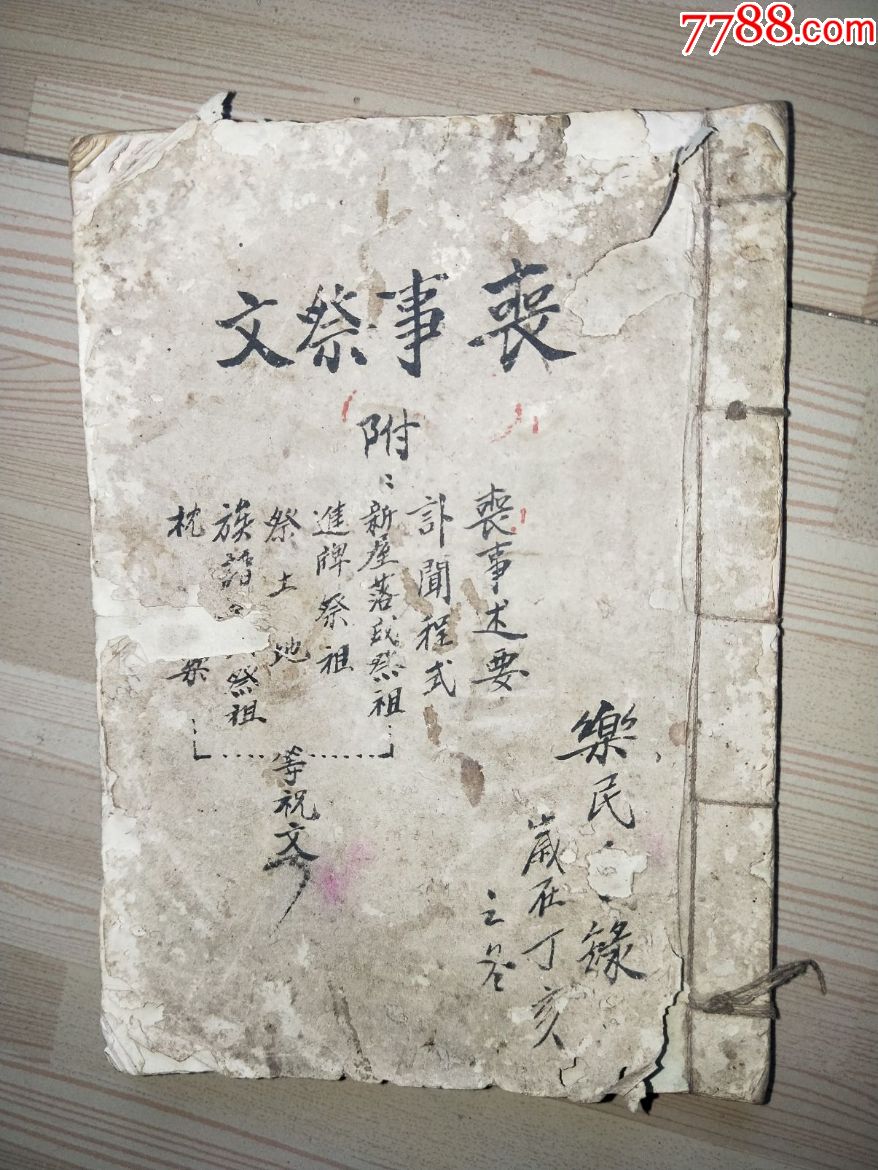 7788.com
喪事祭文
附:
喪事述要
訃聞程式
新屋落成祭祖
進牌祭祖
祭土地
族譜 祭祖
枕
等祝文
樂民 錄
歲在丁亥